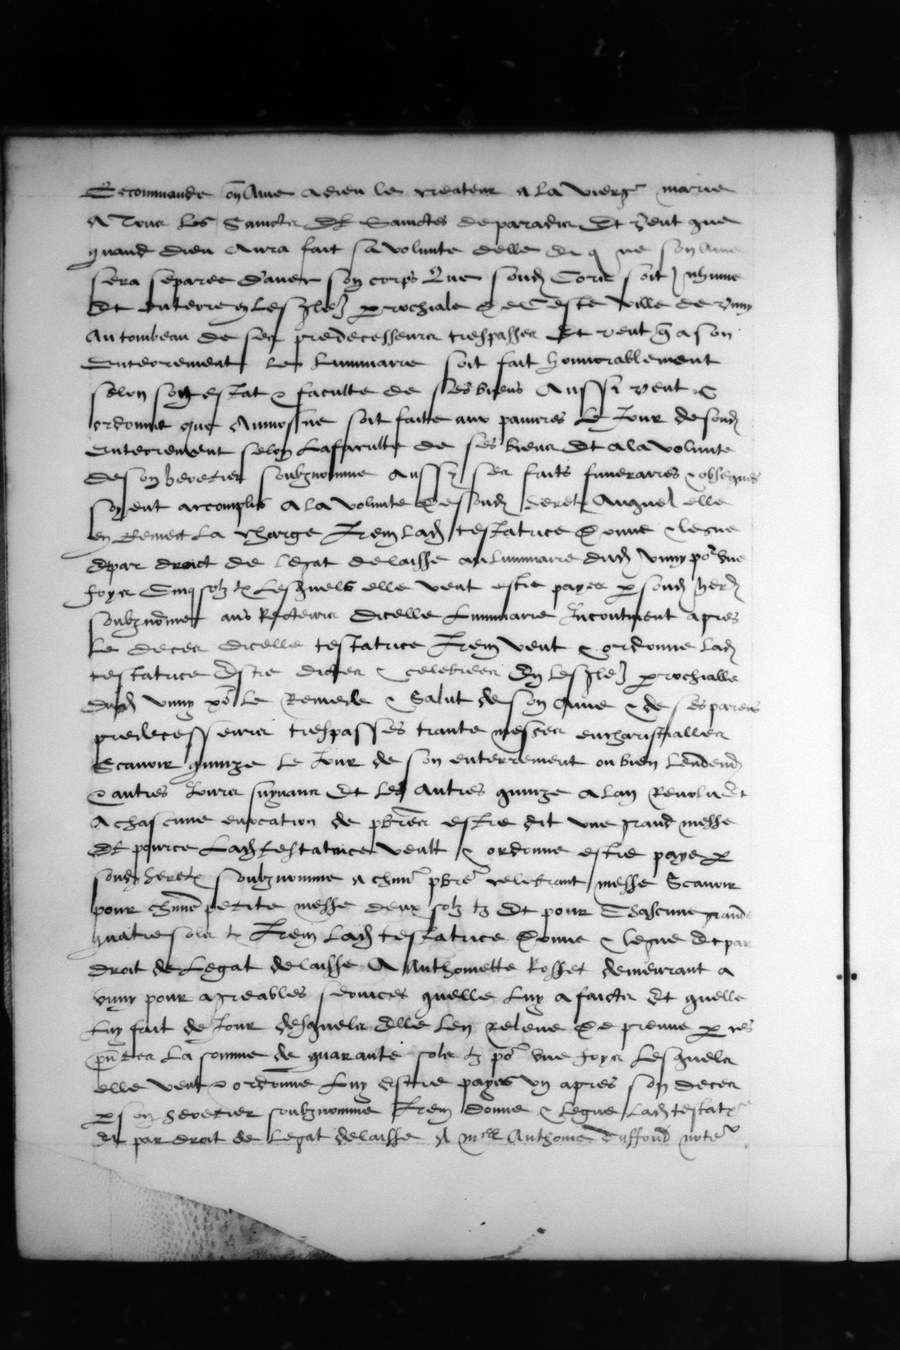 Recommande son Ame a dieu le createur a la vierge marie
A tous les Sainctz Et Sainctes de paradis Et veut que
quand dieu Aura fait sa volunte delle Et que son Ame
sera separee davec son corps Que sond Corps soit Inhume
Et Enterre en Leglise parrochiale de Ceste ville de Vnny
Au tombeau de ses predecesseurs trespasses Et veut q a son
Enterrement Le Luminaire soit fait honnorablement
selon son estat & faculte de ses biens Aussi veut &
ordonne que Aumosne soit faitte aux pauvres Le Jour de sond
Enterrement selon La faculte de ses biens Et a la volunte
de son heretier soubznomme aussy ses faits funeraires & obseques
soyent accomplis A la volunte de sond heretr Auquel elle
en Remect La charge Item Lad testatrice donne & legue
et par droict de legat delaisse au Luminaire dud Vnny por vne
foys Cinq solz tz Lesquels elle veut estre payes p sond herr
soubznomme aux Recteurs dicelle Luminarie Incontinent apres
Le deces dicelle testatrice Item veut & ordonne lad
testatrice Estre dictes & celebrees En Leglise parrochialle
dud Vnny por Le Remede & Salut de son Ame & de ses parens
predecesseurs trespasses trante messes
Scavoir quinze Le Jour de son enterrement ou bien Lendemain
& autres Jours suyvans Et Les Autres quinze a lan Revolu Et
A chascune evocation de pbres estre dit vne grand messe
Et pource Lad testatrice veult & ordonne estre paye p
sond heretr soubznomme a chm pbre celebrant messe Scavoir
pour chune petite messe deux solz tz Et pour Chascune grande
quatre solz tz Item Lad testatrice donne & legue Et par
droit de Legat delaisse A Anthonette Rosset demeurant a
Vnny pour agreables services quelle Luy a faictz Et quelle
Luy fait de Jour Desquels Elle Len releve de preuve p ces
pntes La somme de quarante solz tz por vne foys Lesquels
elle veut & ordonne Luy Estre payes vn apres son deces
p son heretier soubznomme Item donne & legue Lad testatr
Et par droit de Legat delaisse A mtre Anthoine Duffoud notere